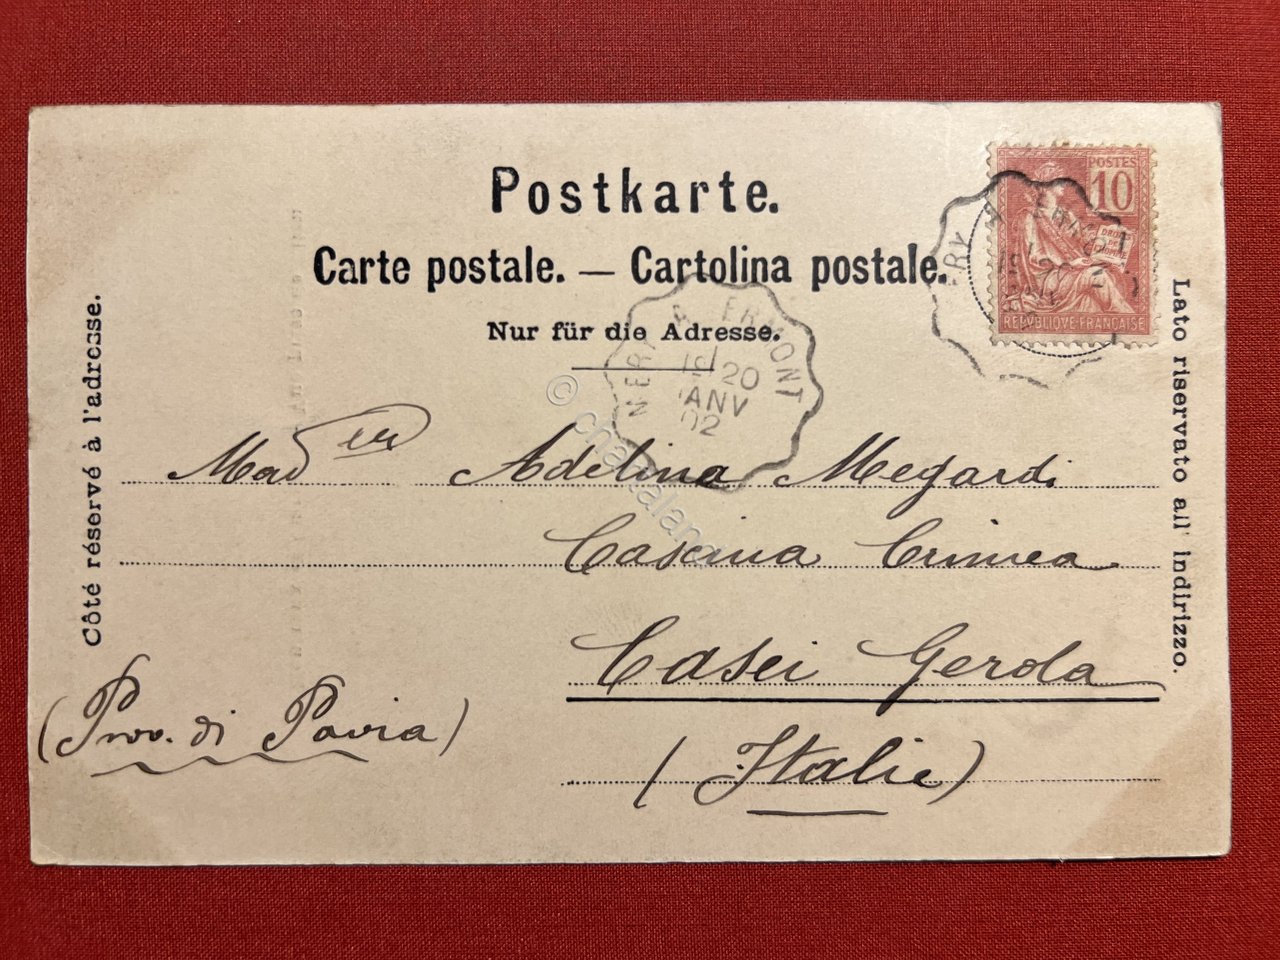 Postkarte.
Carte postale. — Cartolina postale.
Nur für die Adresse.
Côté réservé à l'adresse.
Lato riservato all' indirizzo.
POSTES
10
DROITS DE L'HOMME
REPUBLIQUE·FRANÇAISE
MERY A ERMONT
20
JANV
02
ERY A ERMONT
Mad lle Adelina Megardi
Cascina Crimea
Casei Gerola
(Prov. di Pavia)
(Italie)